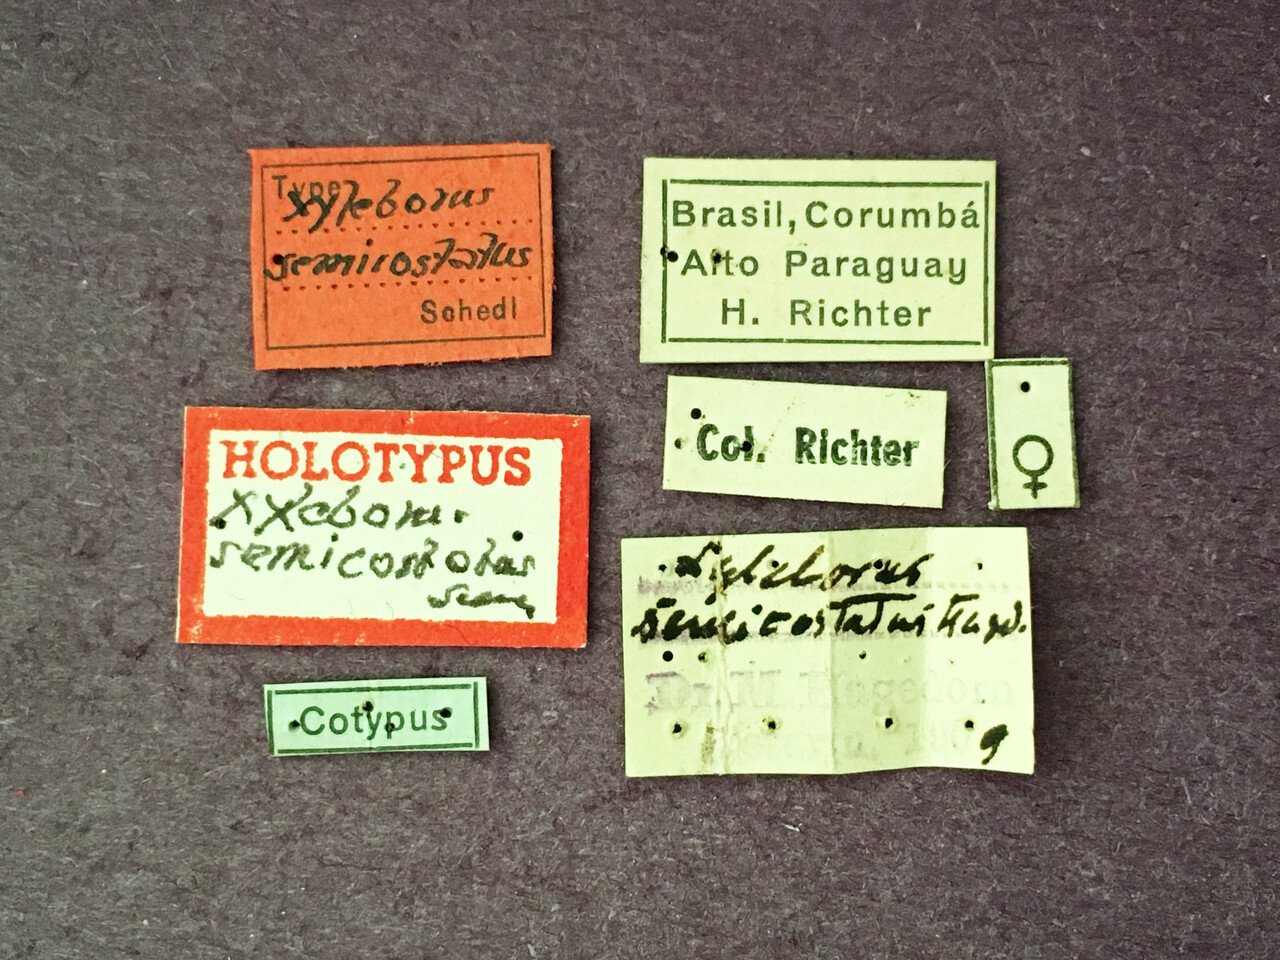 Type
Xyleborus
semicostatus
Schedl
Brasil, Corumbá
Alto Paraguay
H. Richter
Col. Richter
♀
HOLOTYPUS
Xyleboru.
semicostatus
Cotypus
Xyleborus
semicostatus Haged.
Dr. M. Hagedorn